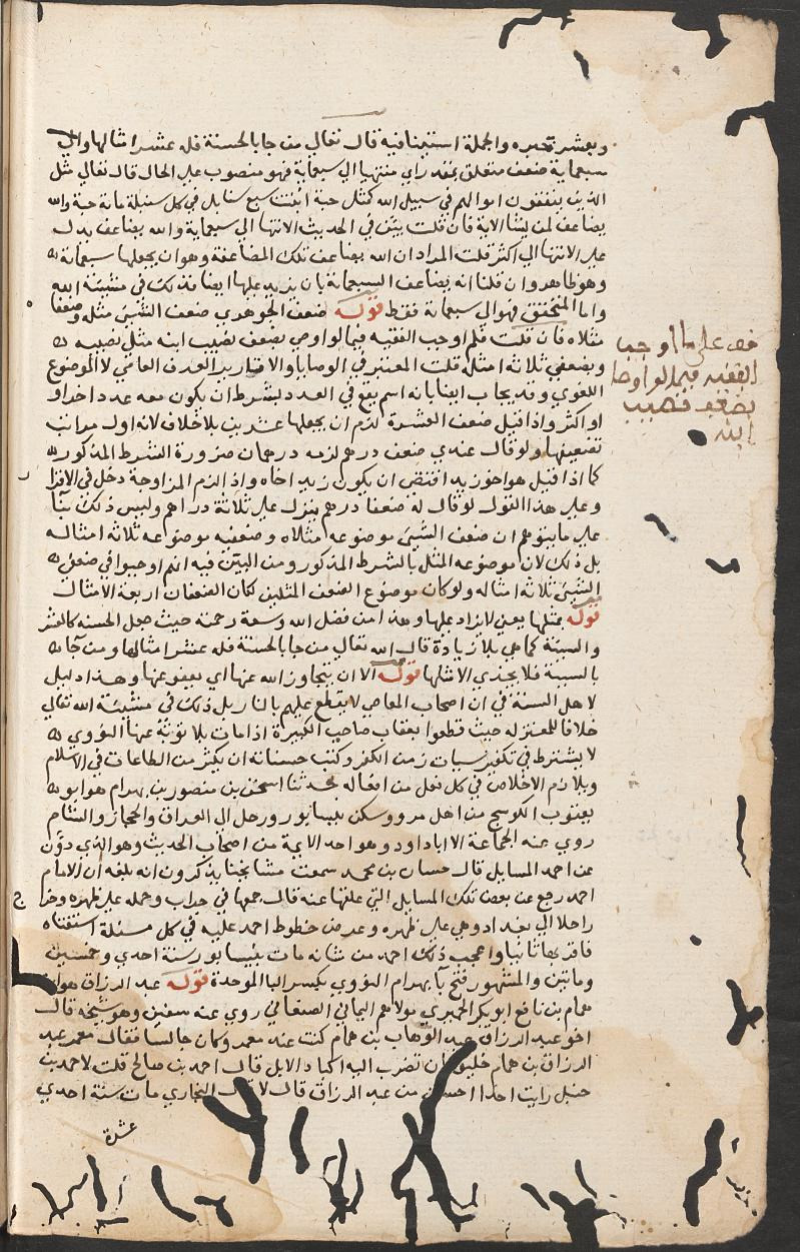 وبعشر خبره والجملة استئنافية قال تعالي من جا بالحسنة فله عشر امثالها والي
سبعماية ضعف متعلق بمقدر اي منتهيا الي سبعماية فهو منصوب علي الحال قال تعالي مثل
الذين ينفقون اموالهم في سبيل الله كمثل حبة انبتت سبع سنابل في كل سنبلة ماية حبة والله
يضاعف لمن يشا الاية فان قلت بين في الحديث الانتها الي سبعماية والله يضاعف يدل
علي الانتها الي اكثر قلت المراد ان الله يضاعف تلك المضاعفة وهو ان يجعلها سبعماية
وهو ظاهر وان قلنا انه يضاعف السبعماية بان يزيد عليها ايضا فذلك في مشيئة الله
واما المتحقق فهو الي سبعماية فقط قوله ضعف الجوهري ضعف الشئ مثله وضعفا
مثلاه فان قلت فلم اوجب الفقيه فيما لو اوصي بضعف نصيب ابنه مثلي نصيبه
وبضعفي ثلاثة امثله قلت المعتبر في الوصايا والاقارير العرف العامي لا الموضوع
اللغوي وقد يجاب ايضا بانه اسم يقع في العدد بشرط ان يكون معه عدد اخر او
او اكثر واذا قيل ضعف العشرة لزم ان يجعلها عشرين بلا خلاف لانه اول مراتب
تضعيفها ولو قال عندي ضعف درهم لزمه درهمان ضرورة الشرط المذكور
كما اذا قيل هو اخو زيد اقتضي ان يكون زيد اخاه واذا لزم المزاوجة دخل في الاقرا
وعلي هذا القول لو قال له ضعفا درهم ينزل علي ثلاثة دراهم وليس ذلك بنا
علي ما يتوهم ان ضعف الشئ موضوعه مثلاه وضعفيه موضوعه ثلاثة امثاله
بل ذلك لان موضوعه المثل بالشرط المذكور ومن البين فيه انهم اوجبوا في ضعفي
الشئ ثلاثة امثاله ولو كان موضوع الضعف المثلين لكان الضعفان اربعة الامثال
قوله بمثلها يعني لا يزاد عليها وهذا من فضل الله وسعة رحمته حيث جعل الحسنة كالعشر
والسيئة كما هي بلا زيادة قال الله تعالي من جا بالحسنة فله عشر امثالها ومن جا
بالسيئة فلا يجزي الا مثلها قوله الا ان يتجاوز الله عنها اي يعفو عنها وهذا دليل
لاهل السنة في ان اصحاب المعاصي لا يقطع عليهم بالنار بل ذلك في مشيئة الله تعالي
خلافا للمعتزلة حيث قطعوا بعقاب صاحب الكبيرة اذا مات بلا توبة عنها النووي
لا يشترط في تكفير سيات زمن الكفر وكتب حسناته ان يكثر من الطاعات في الاسلام
ويلازم الاخلاص في كل فعل من افعاله حدثنا اسحق بن منصور بن بهرام هو ابو
يعقوب الكوسج من اهل مرو وسكن نيسابور ورحل الي العراق والحجاز والشام
روي عنه الجماعة الا اباداود وهو احد الايمة من اصحاب الحديث وهو الذي دون
عن احمد المسايل قال حسان بن محمد سمعت مشايخنا يذكرون انه بلغه ان الامام
احمد رجع عن بعض تلك المسايل التي علقها عنه قال جمعها في جراب وحمله علي ظهره وخرج
راجلا الي بغداد وهي علي ظهره وعرض خطوط احمد عليه في كل مسئلة استفتاه
فاقر بها ثانيا واعجب ذلك احمد من شانه مات بنيسابور سنة احدي وخمسين
ومايتين والمشهور فتح با بهرام النووي بكسر البا الموحدة قوله عبد الرزاق هو ابن
همام بن نافع ابوبكر الحميري مولاهم اليماني الصنعاني روي عنه سفين وهو شيخه قال
اخو عبد الرزاق عبد الوهاب بن همام كنت عند معمر وكان جالسا فقال معمر عبد
الرزاق بن همام خليق ان تضرب اليه اكباد الابل قال احمد بن صالح قلت لاحمد بن
حنبل رايت احدا احسن من عبد الرزاق قال لا قال البخاري مات سنة احدي
عشرة
قف علي ما اوجب
الفقيه فيما لو اوصا
بضعف نصيب
ابنه